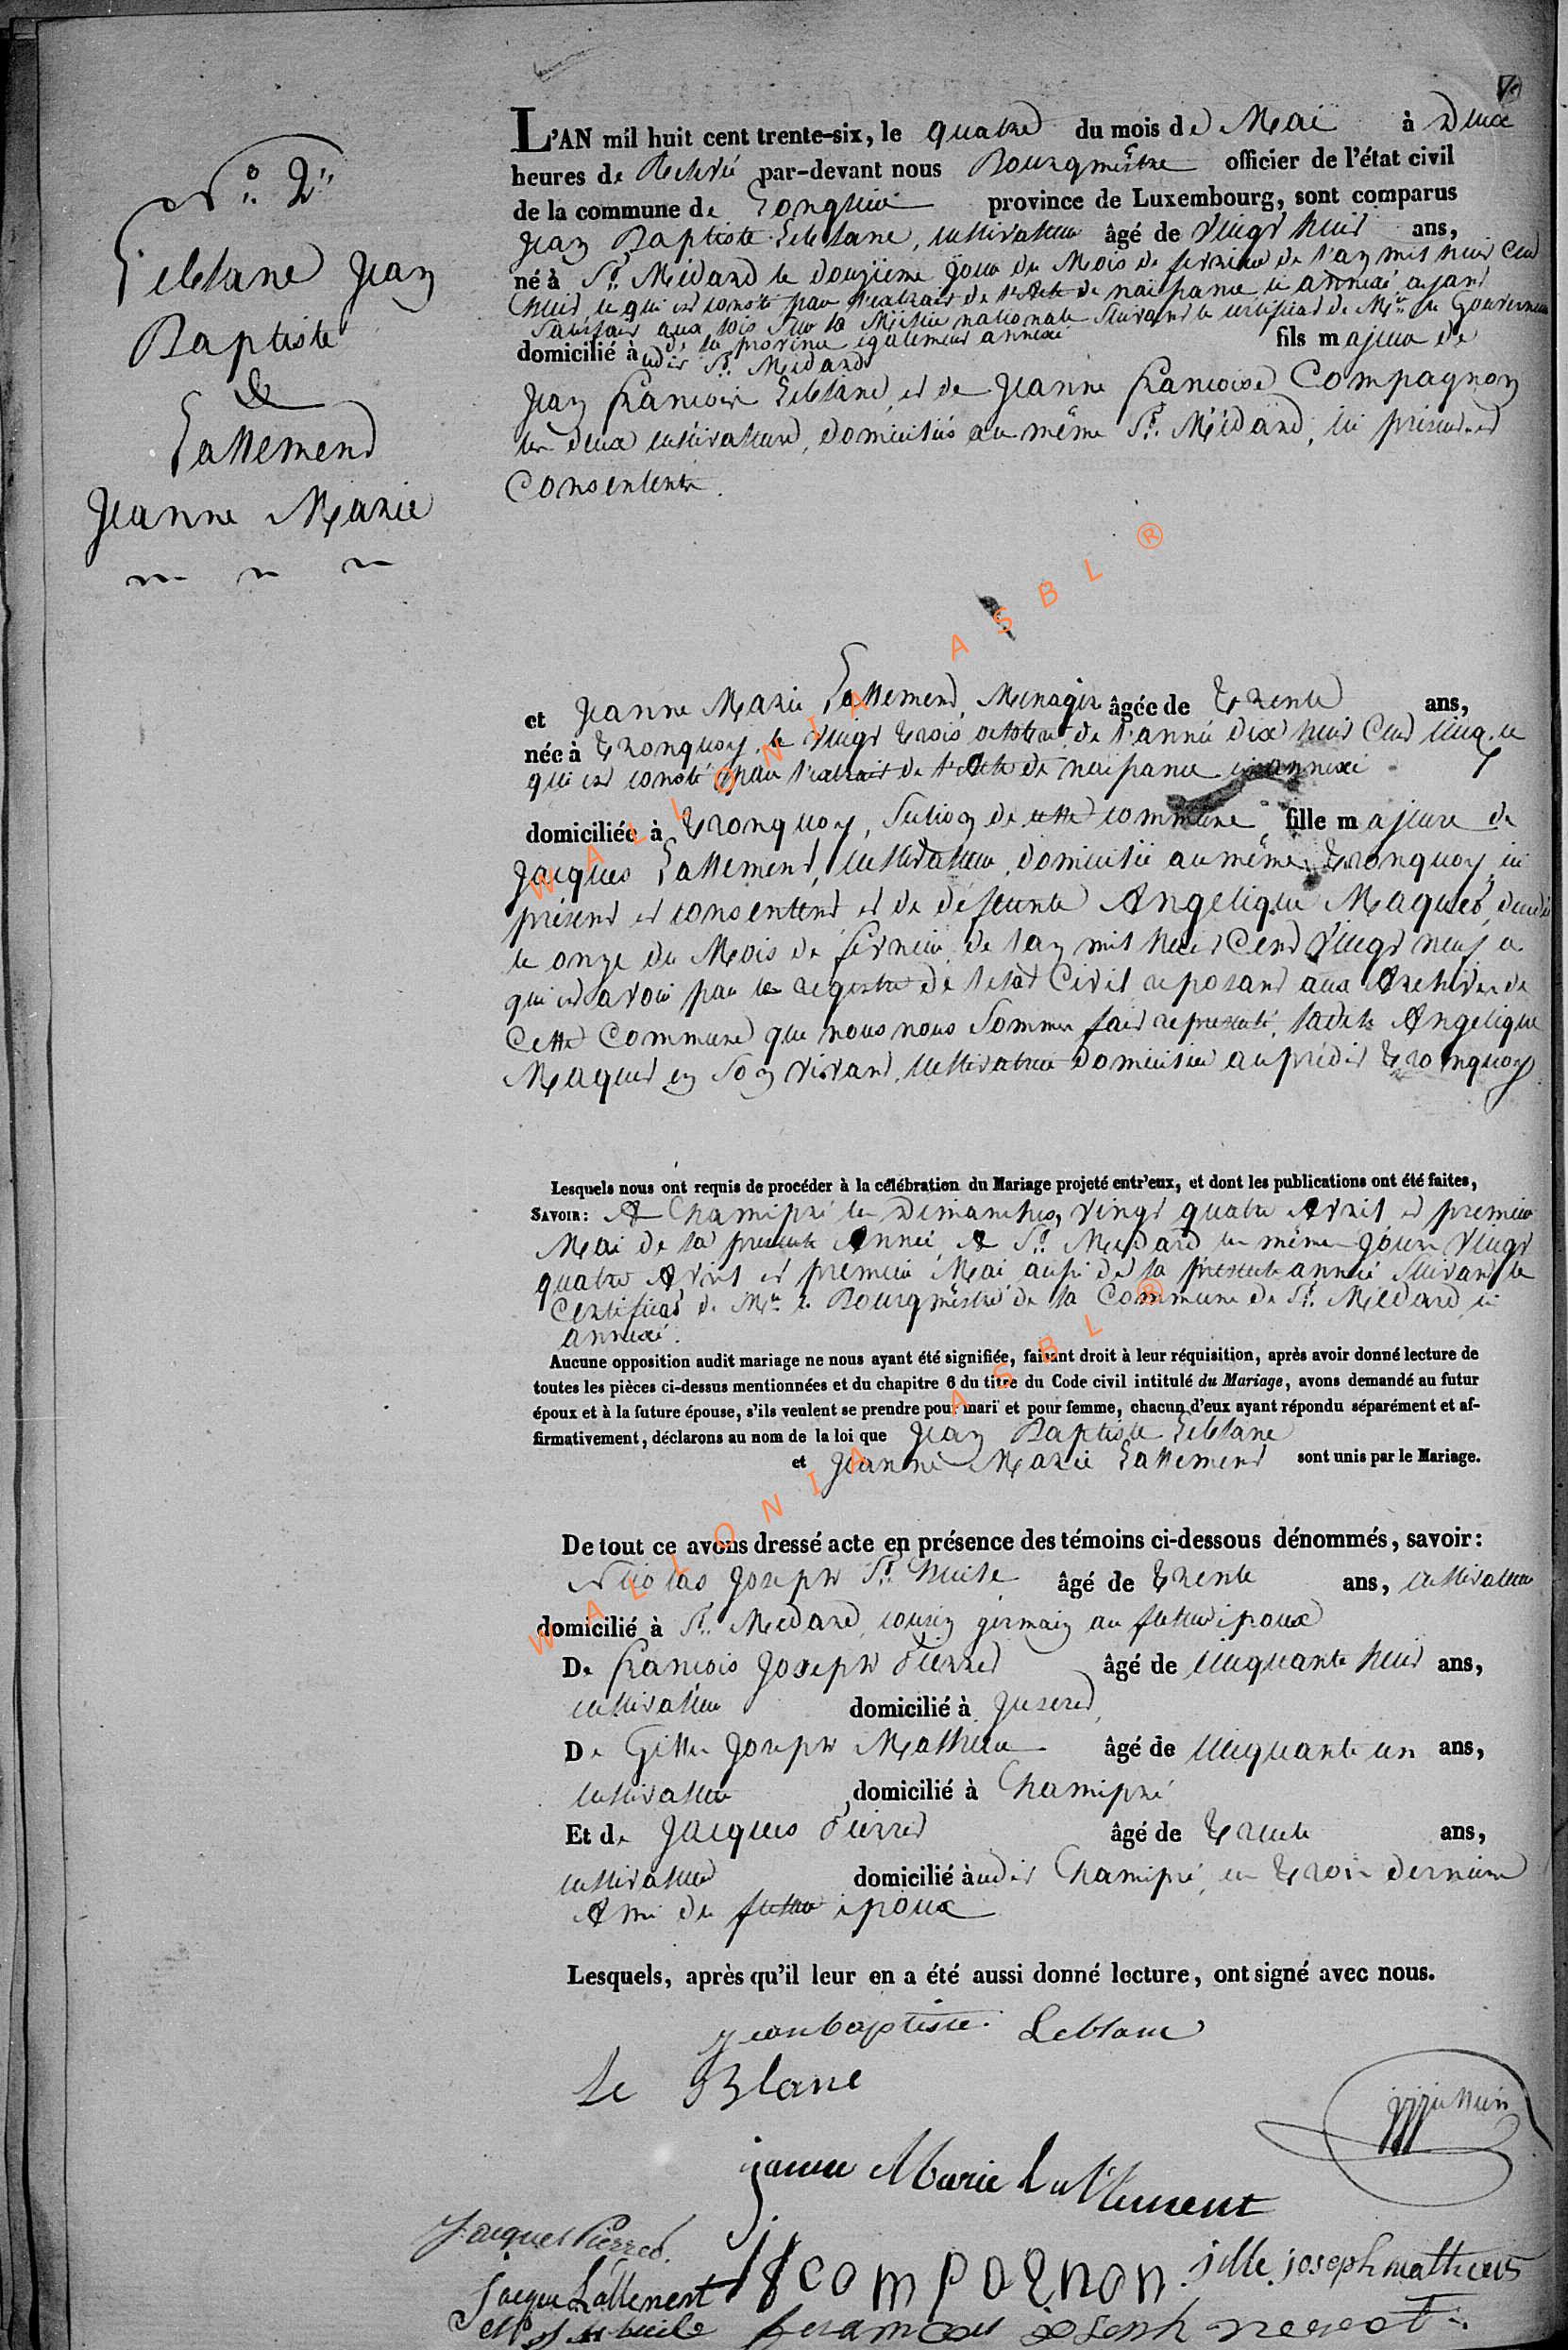 N.o 2.
Leblanc Jean
Baptiste
&
Lallemend
Jeanne Marie
L'AN mil huit cent trente-six, le quatre du mois de Mai à Deux
heures de Relevé par-devant nous Bourgmêstre officier de l'état civil
de la commune de Longlier province de Luxembourg, sont comparus
Jean Baptiste Leblanc, cultivateur âgé de vingt huit ans,
né à St. Médard le douzième jour du Mois de fevrier de l'an mil huit cent
huit, ce qui est consté par l'extrait de l'Acte de naissance ci annexé ayant
satisfait aux lois sur la Milice nationale suivant le certificat de Mr. le Gouverneur
de la province egalement annexé
domicilié à udit St. Médard fils majeur de
Jean francois Leblanc et de Jeanne francoise Compagnon
les deux cultivateurs, domiciliés au même St. Médard, ici présents et
Consentents.
et Jeanne Marie Lallemend, Menagère âgée de Trente ans,
née à Tronquoy le vingt trois octobre de l'année dix huit Cent cinq, ce
qui est consté par l'extrait de l'Acte de naissance ci annexé
domiciliée à Tronquoy, Section de cette commune, fille majeure de
Jacques Lallemend, cultivateur, domicilié au même Tronquoy, ici
présent et consentent et de defeunte Angelique Maquet, décédée
le onze du Mois de fevrier de l'an mil huit Cent vingt neuf ce
qui est avoué par les registre de l'etat Civil reposant aux Archives de
Cette Commune que nous nous Sommes fait representé, ladite Angelique
Maquet en son vivant cultivatrice domiciliée au prédit Tronquoy
Lesquels nous ont requis de procéder à la célébration du Mariage projeté entr'eux, et dont les publications ont été faites,
SAVOIR: A hamipré les Dimanches, vingt quatre Avril et premier
Mai de la presente Année, A St. Medard les même jours vingt
quatre Avril et premier Mai aussi de la presente année suivant le
Certificat de Mr. le Bourgmêstre de la Commune de St. Medard ci
annexé.
Aucune opposition audit mariage ne nous ayant été signifiée, faisant droit à leur réquisition, après avoir donné lecture de
toutes les pièces ci-dessus mentionnées et du chapitre 6 du titre du Code civil intitulé du Mariage, avons demandé au futur
époux et à la future épouse, s'ils veulent se prendre pour mari et pour femme, chacun d'eux ayant répondu séparément et af-
firmativement, déclarons au nom de la loi que Jean Baptiste Leblanc
et Jeanne Marie Lallemend sont unis par le Mariage.
De tout ce avons dressé acte en présence des témoins ci-dessous dénommés, savoir:
Nicolas Joseph St. huile âgé de Trente ans, cultivateur
domicilié à St. Medard, cousin germain au futur époux
De francois Joseph Pierret âgé de cinquante huit ans,
cultivateur domicilié à Juseret,
De Gille Joseph Mathieu âgé de cinquante un ans,
cultivateur domicilié à hamipré
Et de Jacques Pierret âgé de Trente ans,
cultivateur domicilié àudit hamipré, les trois derniers
Ami du futur époux
Lesquels, après qu'il leur en a été aussi donné lecture, ont signé avec nous.
jeanbaptiste Leblanc
le Blanc
janne Marie Lallement
Jacques Pierret
Jf compagnon jille joseph mathieus
jacque Lallement
WALLONIA ASBL ®
WALLONIA ASBL ®